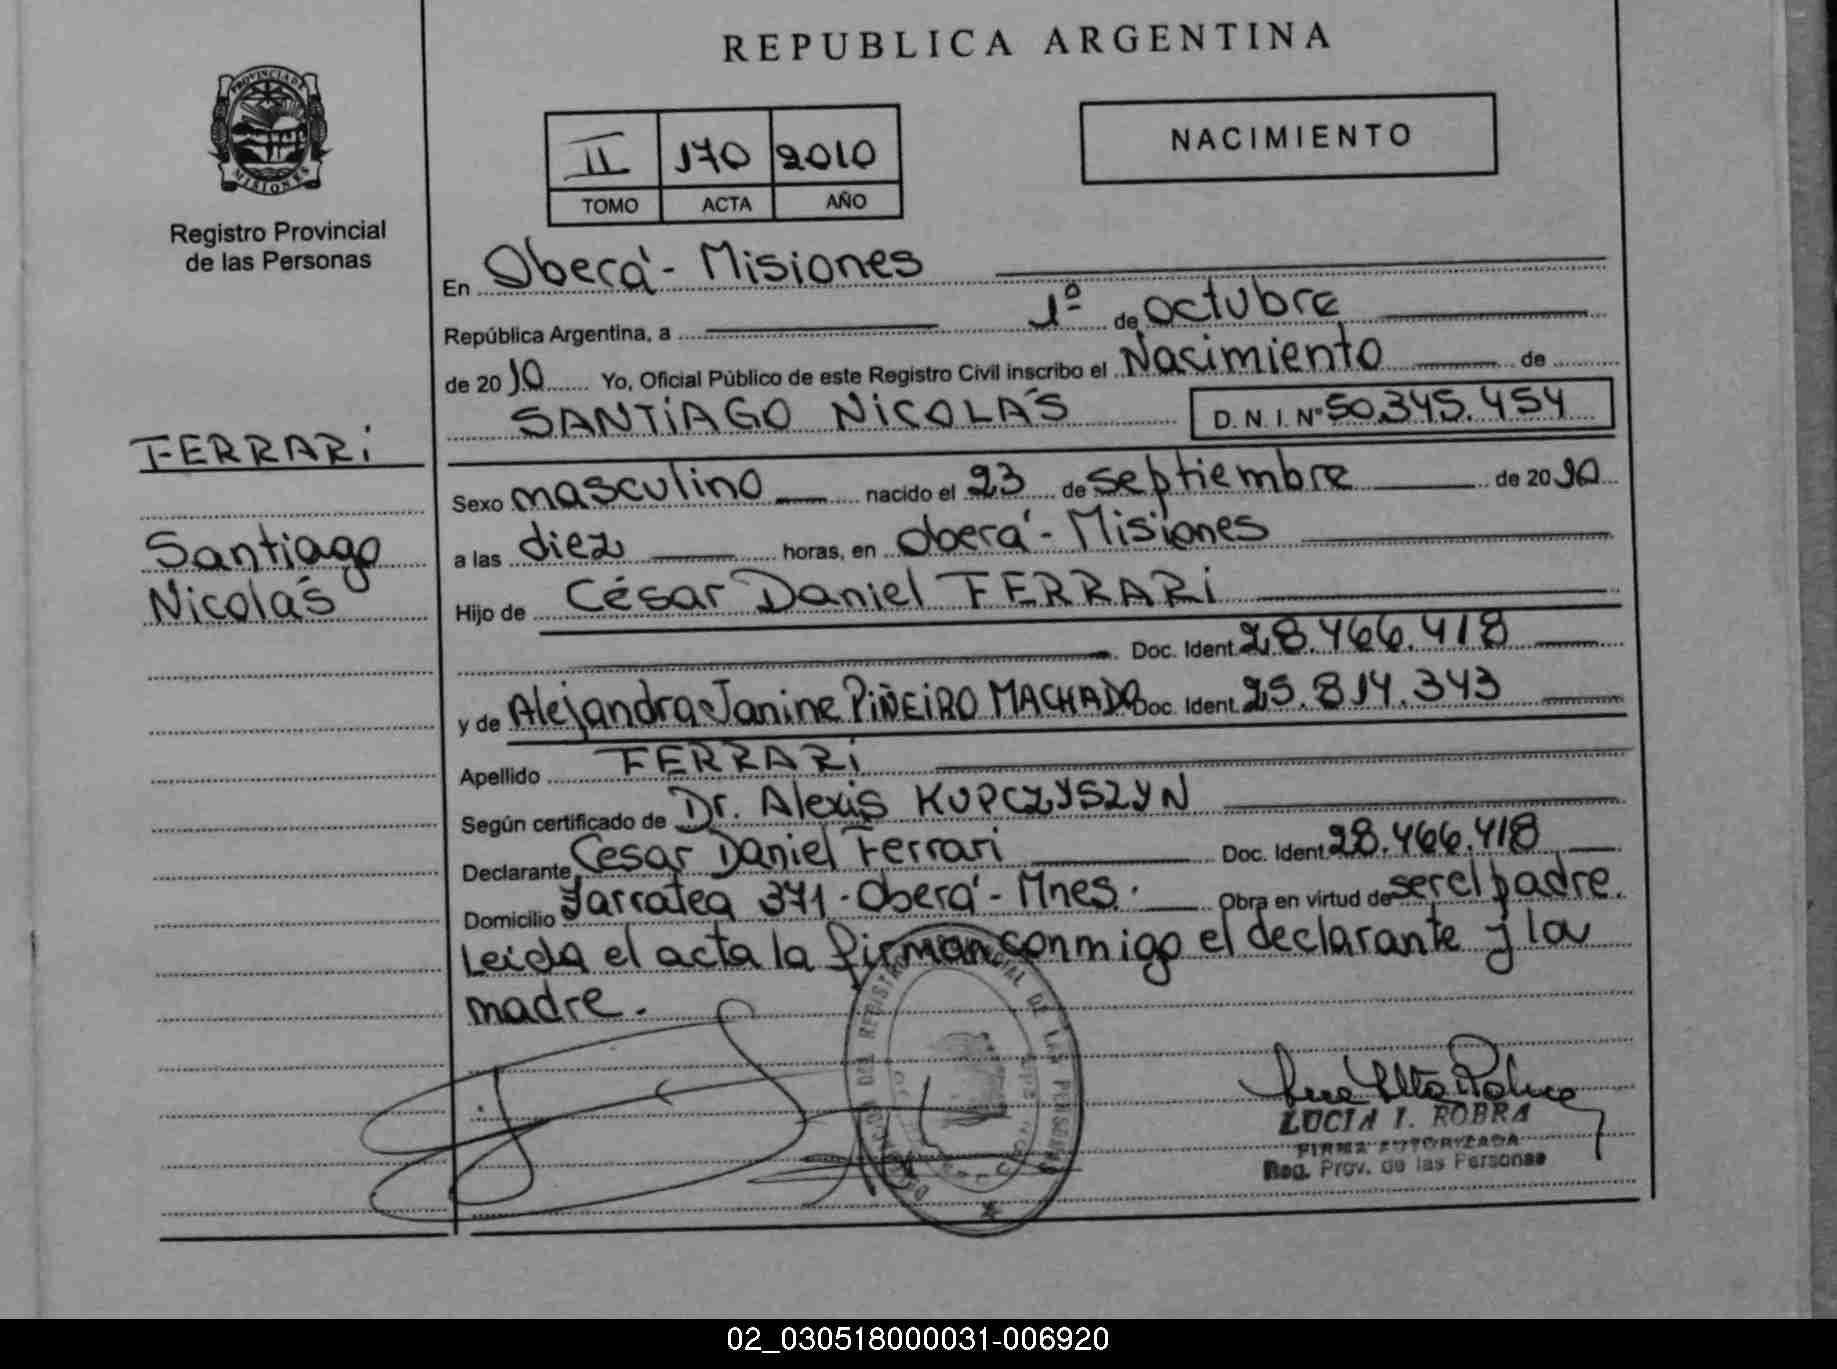 REPUBLICA ARGENTINA
PROVINCIA DE
MISIONES
Registro Provincial
de las Personas
II 170 2010
TOMO ACTA AÑO
NACIMIENTO
En Oberá - Misiones
República Argentina, a 1º de octubre
de 2010 Yo, Oficial Público de este Registro Civil inscribo el Nacimiento de
SANTIAGO NICOLÁS D. N. I. Nº 50.345.454
FERRARI
Sexo masculino nacido el 23 de septiembre de 2010
Santiago
a las diez horas, en Oberá - Misiones
Nicolás
Hijo de César Daniel FERRARI
Doc. Ident. 28.466.418
y de Alejandra Janine PIÑEIRO MACHADO Doc. Ident. 25.814.343
Apellido FERRARI
Según certificado de Dr. Alexis KUPCZYSZYN
Declarante Cesar Daniel Ferrari Doc. Ident. 28.466.418
Domicilio Sarratea 371 - Oberá - Mnes. Obra en virtud de ser el padre.
Leida el acta la firman conmigo el declarante y la
madre.
LUCIA I. ROBRA
FIRMA AUTORIZADA
Reg. Prov. de las Personas
02_030518000031-006920